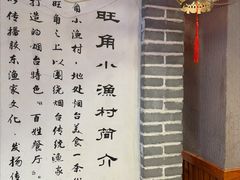 旺角小渔村简介
角小渔村,地处烟台美食一条街
旺角之上以围绕烟台传统渔家
打造的烟台特色“百姓餐厅”。
以传播胶东渔家文化、发扬传